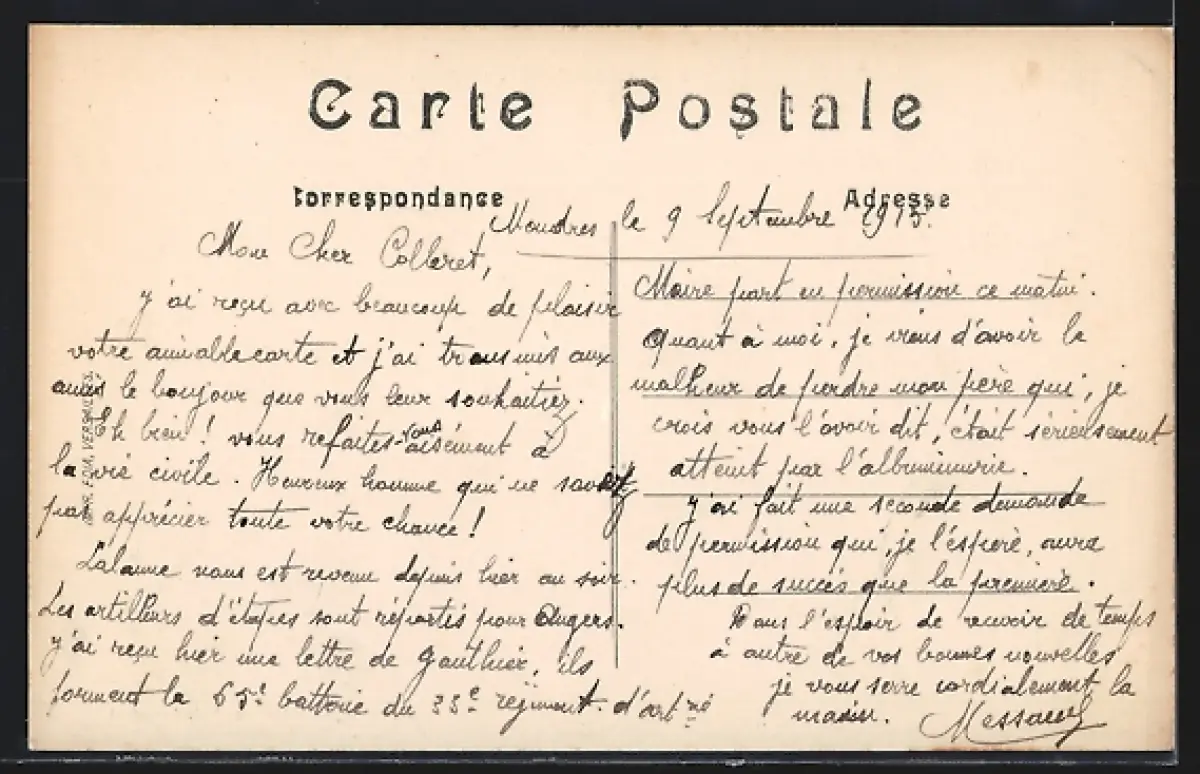 Carte Postale
Correspondance
Adresse
le 9 Septembre 1915.
Mon Cher Colleret,
J'ai reçu avec beaucoup de plaisir
votre aimable carte et j'ai transmis aux
amis le bonjour que vous leur souhaitiez.
Eh bien! vous refaites-vous aisément à
la vie civile. Heureux homme qui ne savez
pas apprécier toute votre chance!
Lalanne nous est revenu depuis hier au soir.
Les artilleurs d'étapes sont répartis pour Angers.
J'ai reçu hier une lettre de Gauthier, ils
forment la 65e batterie du 33e régiment d'art
Maire part en permission ce matin.
Quant à moi, je viens d'avoir le
malheur de perdre mon père qui, je
crois vous l'avoir dit, était sérieusement
atteint par l'albuminurie.
J'ai fait une seconde demande
de permission qui, je l'espère, aura
plus de succès que la première.
Dans l'espoir de recevoir de temps
à autre de vos bonnes nouvelles
je vous serre cordialement la
main.